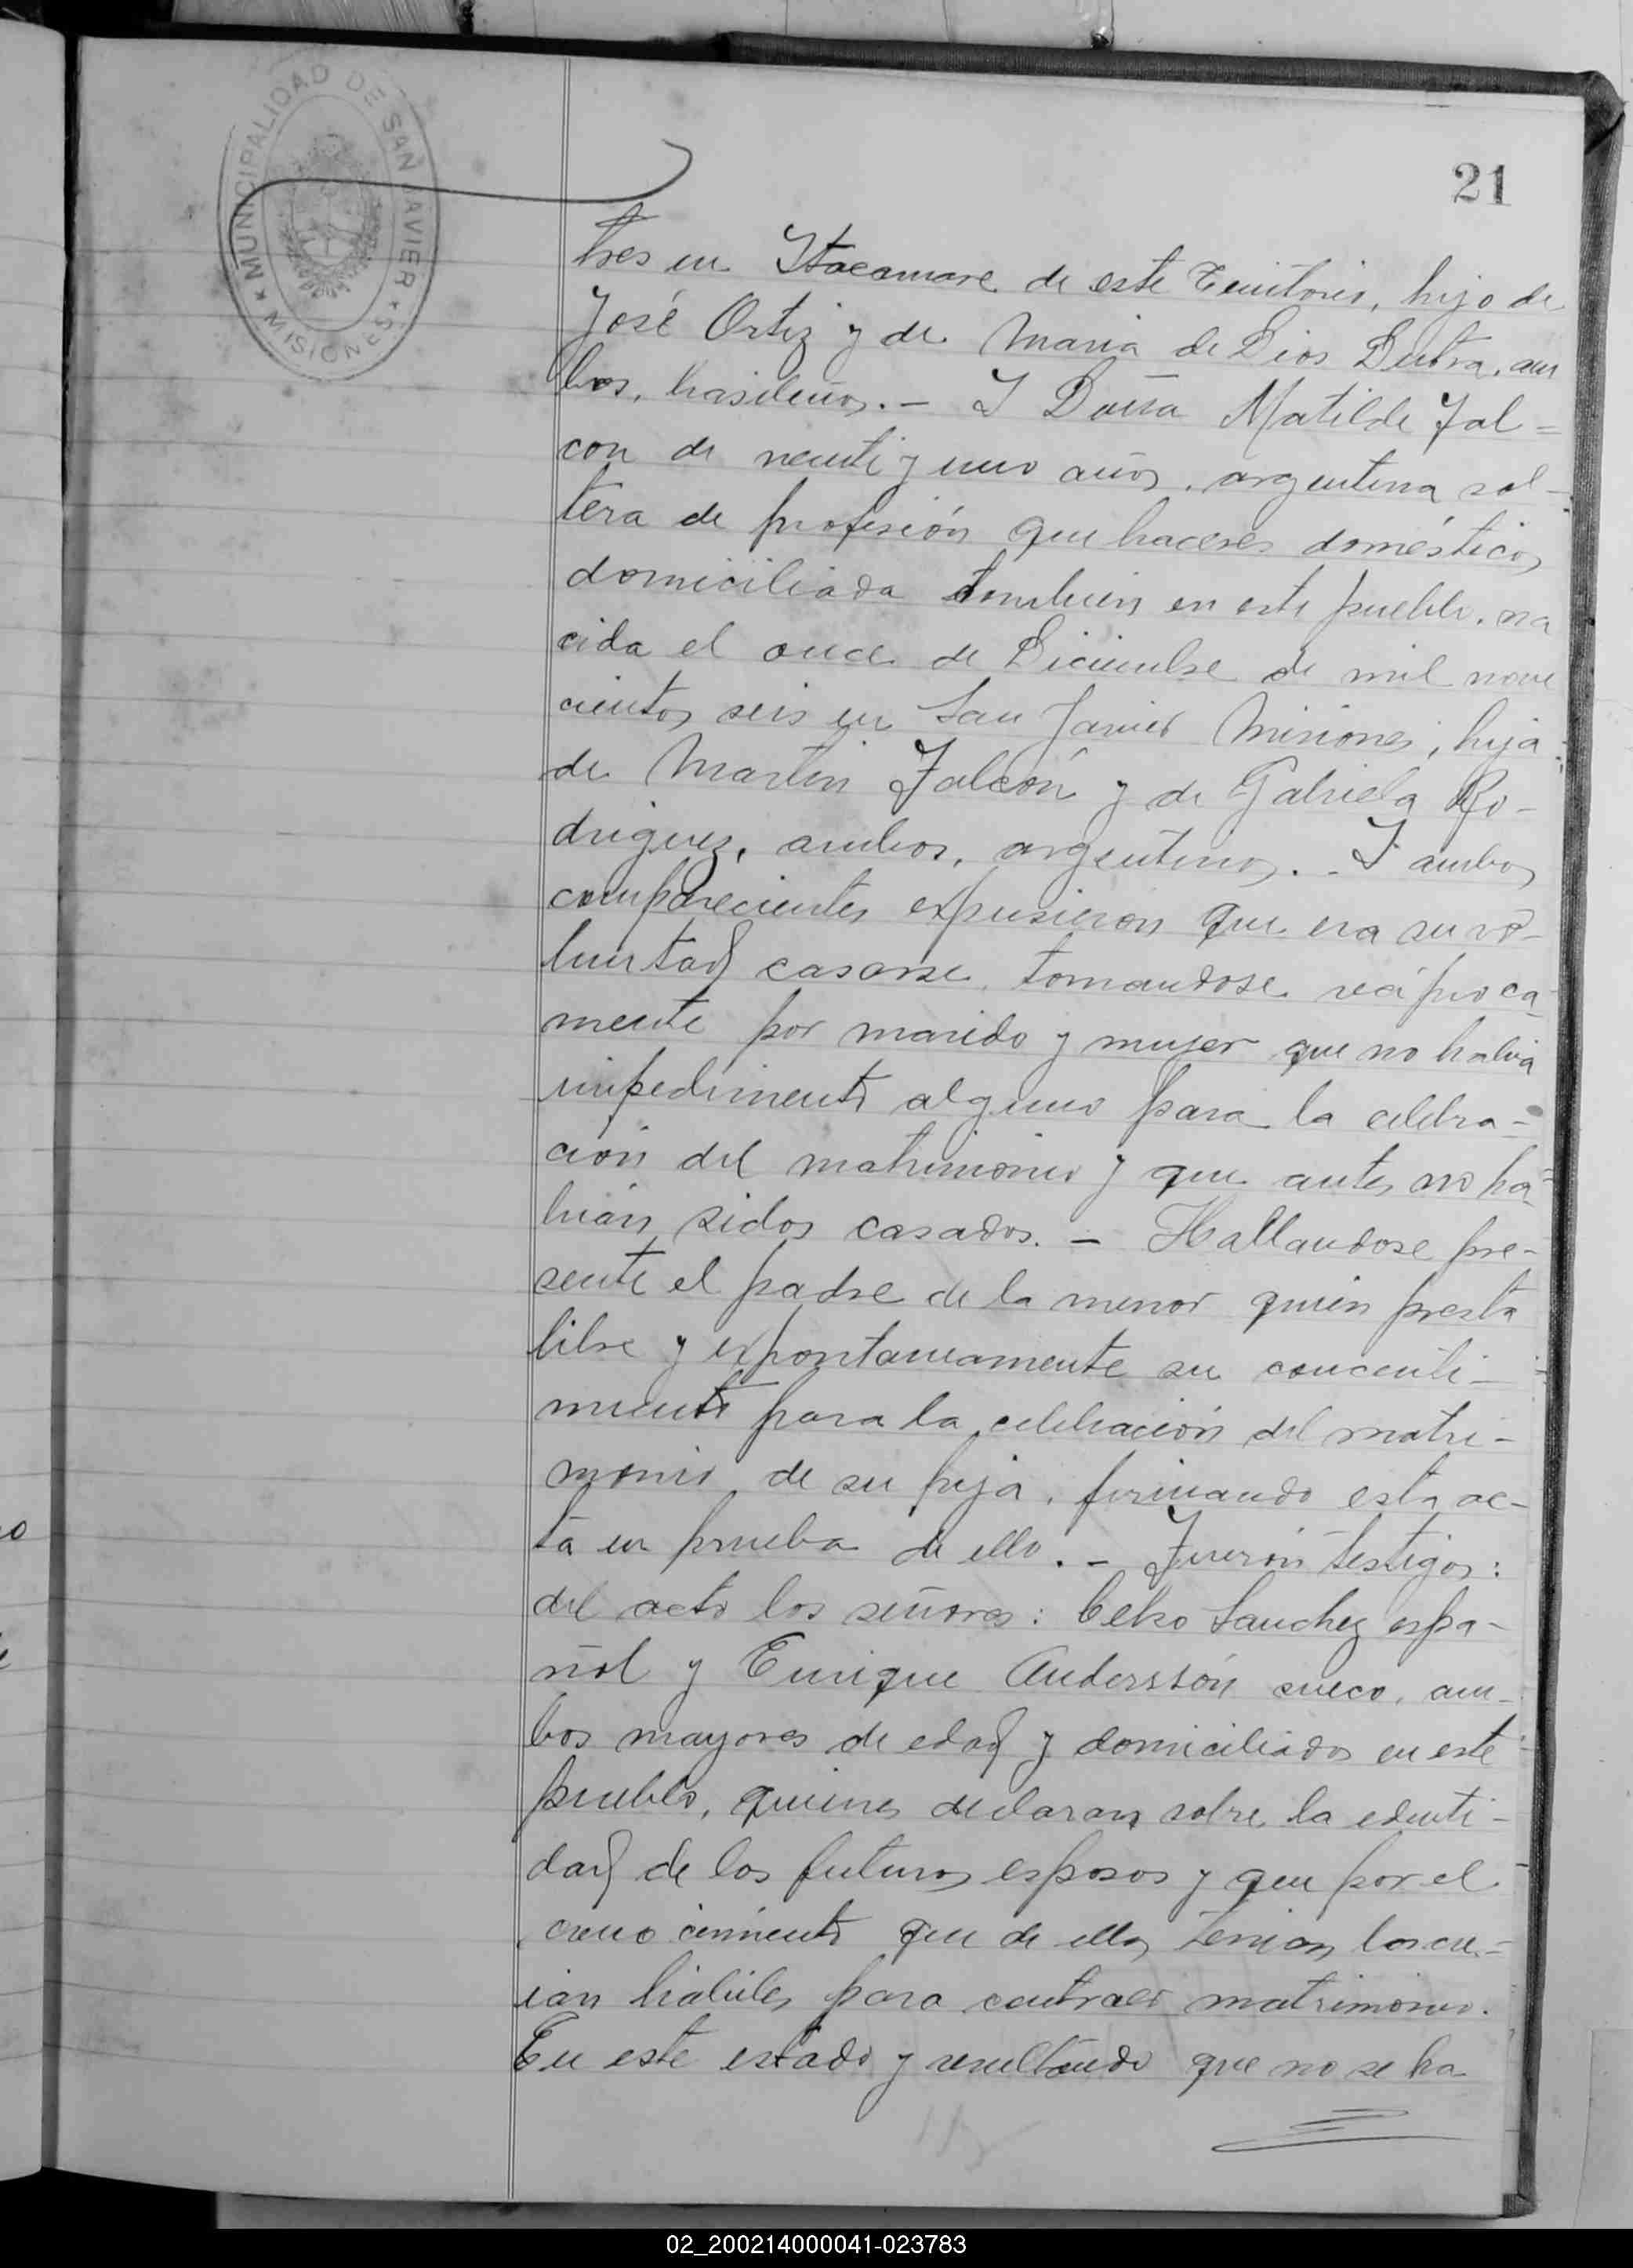 MUNICIPALIDAD DE SAN JAVIER
★ MISIONES ★
21
tres en Itacaruare de este Territorio, hijo de
José Ortiz y de Maria de Dios Dutra, am
bos, brasileños. - Y Doña Matilde Fal=
con de veinti y uno años, argentina sol-
tera de profesión que haceres domésticos
domiciliada tambien en este pueblo, na
cida el once de Diciembre de mil nove
cientos seis en San Javier Misiones, hija
de Martin Falcón y de Gabriela Ro-
driguez, ambos, argentinos. - Y ambos
comparecientes expusieron que era su vo-
luntad casarse, tomandose recíproca-
mente por marido y mujer que no habia
impedimento alguno para la celebra-
ción del matrimonio y que antes no ha-
bian sidos casados. - Hallandose pre-
sente el padre de la menor quien presta
libre y expontaneamente su concenti-
miento para la celebración del matri-
monio de su hija, firmando esta ac-
ta en prueba de ello. - Fuerón testigos:
del acto los señores: Celso Sanchez espa-
ñol y Enrique Anderssón sueco, am-
bos mayores de edad y domiciliados en este
pueblo, quienes declaran sobre la edenti-
dad de los futuros esposos y que por el
conocimiento que de ellos tenian los cre-
ian hábiles para contraer matrimonio.
En este estado y resultando que no se ha
02_200214000041-023783